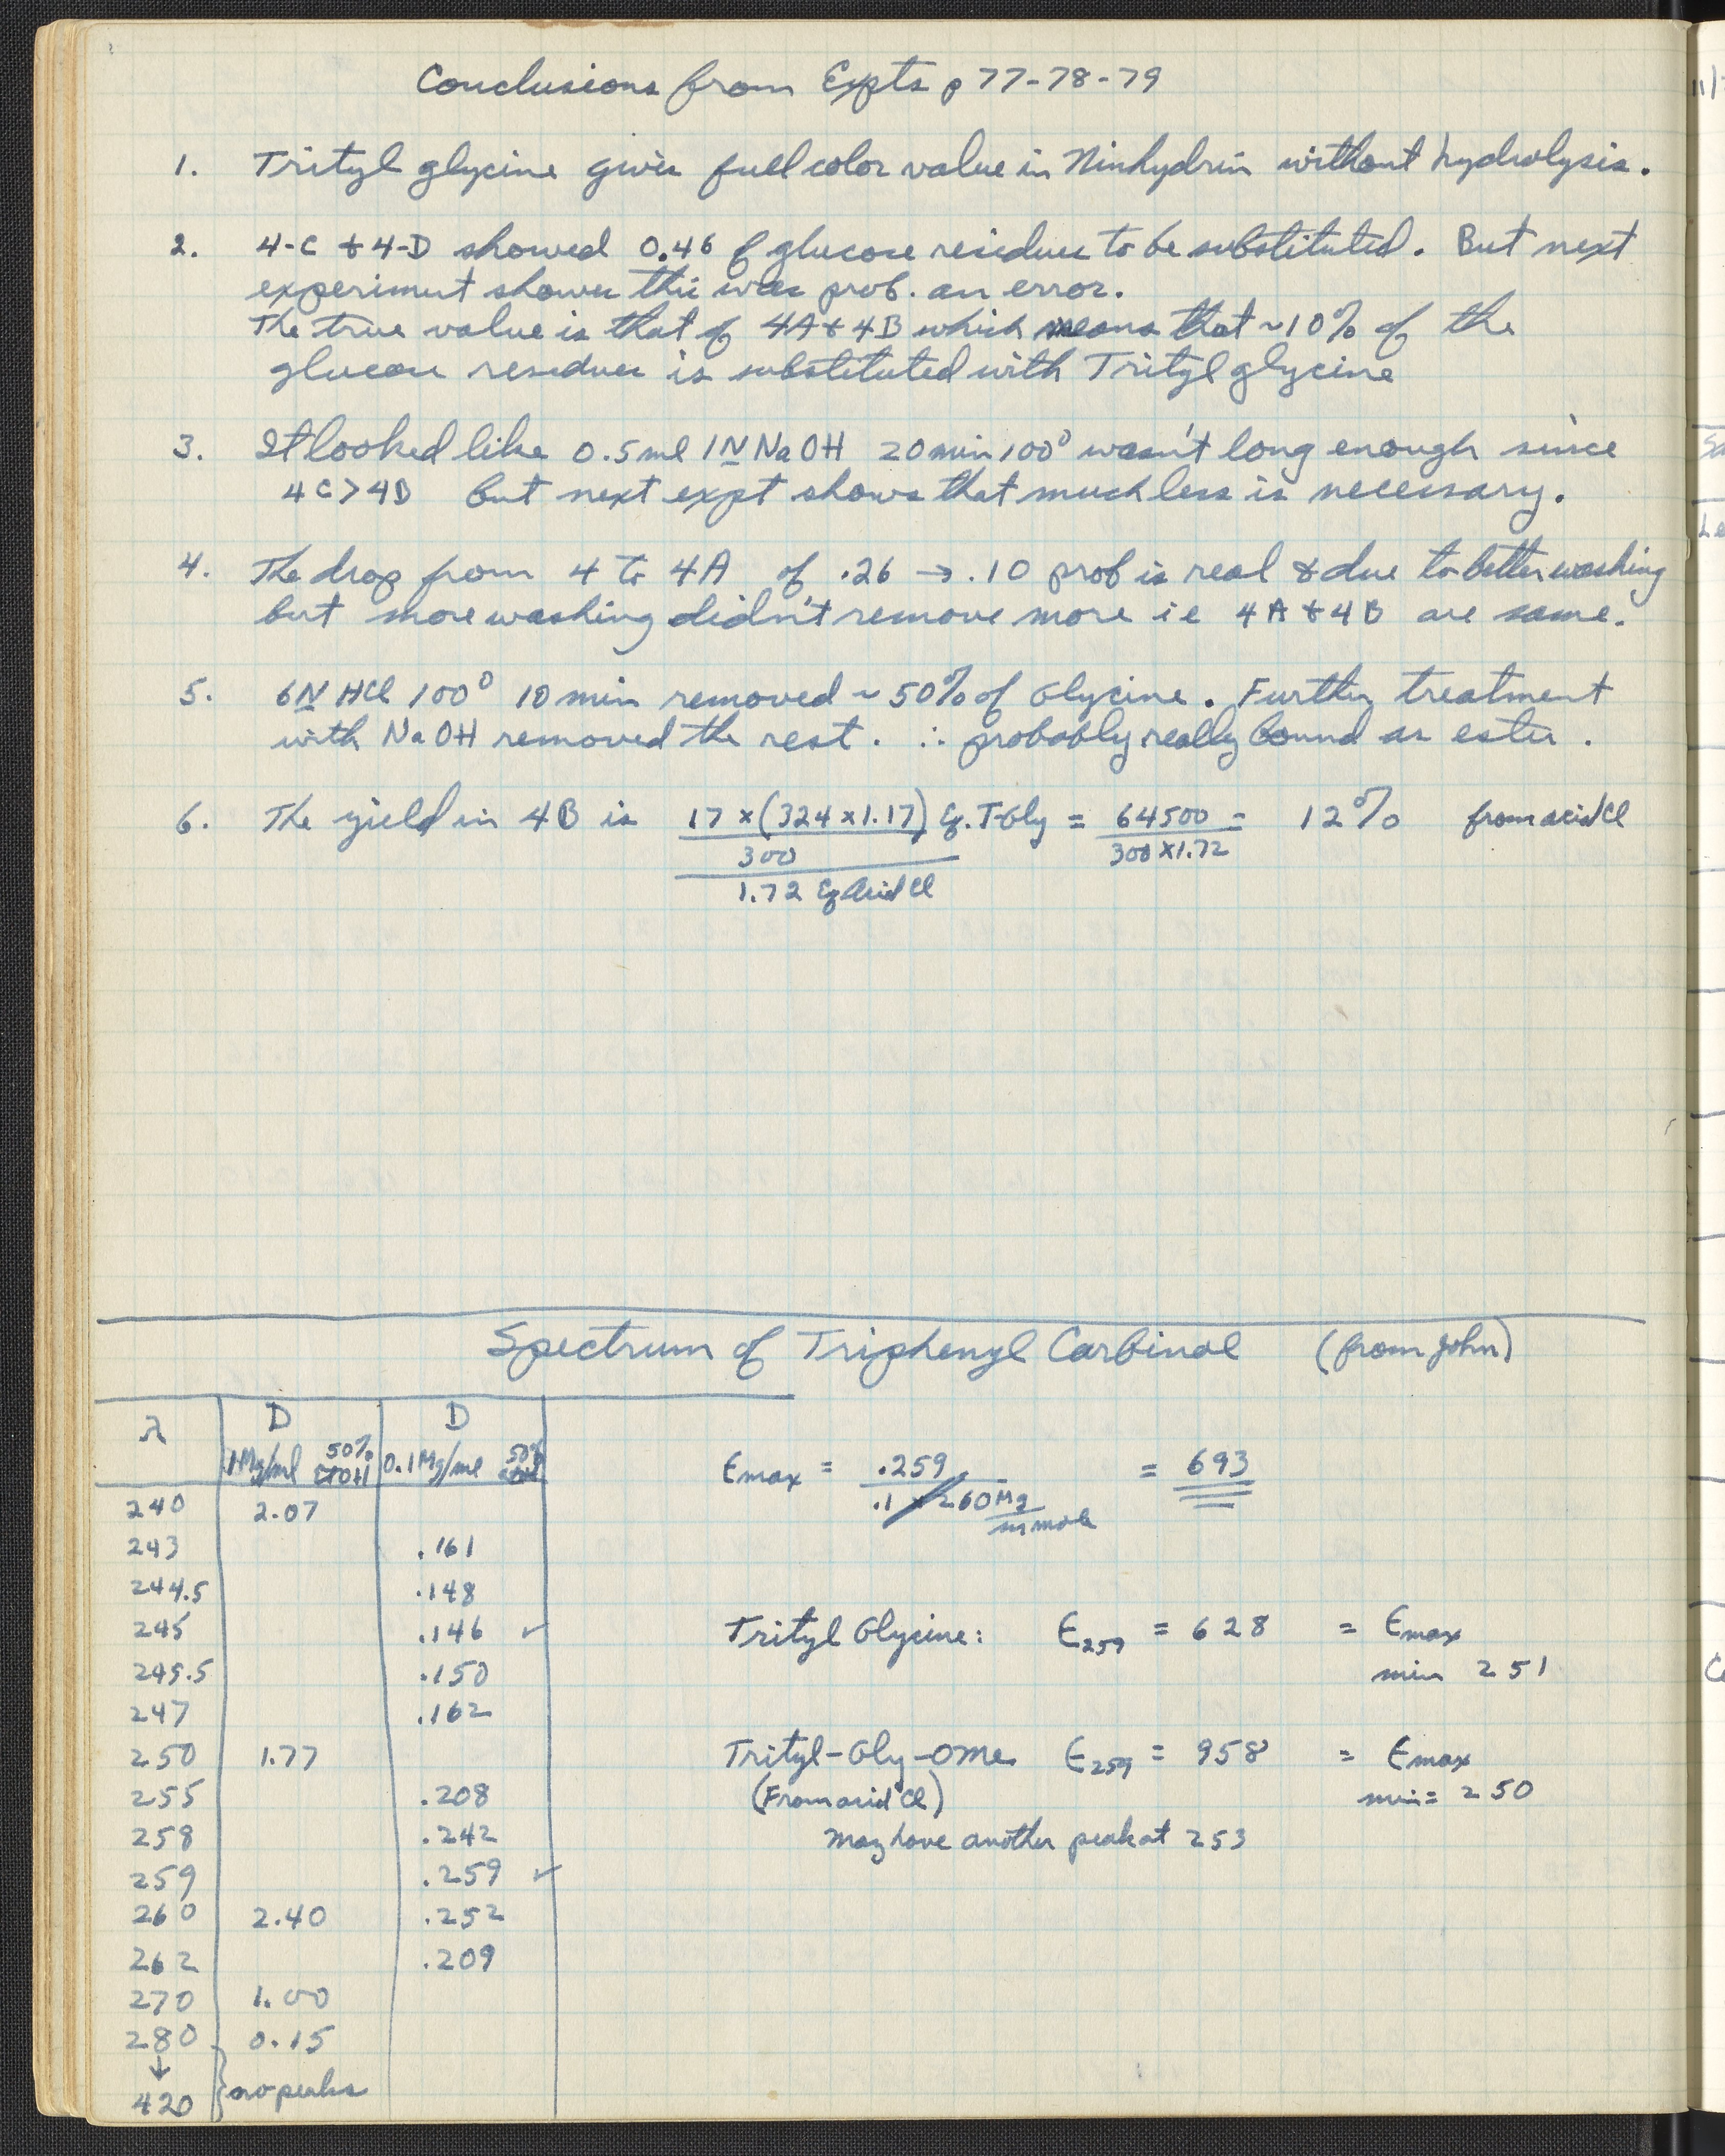 Conclusions from Expts p 77-78-79
1. Trityl glycine gives full color value in Ninhydrin without hydrolysis.
2. 4-C + 4-D showed 0.46 of glucose residues to be substituted. But next
experiment shows this was prob. an error.
The true value is that of 4A + 4B which means that ~10% of the
glucose residues is substituted with Trityl glycine
3. It looked like 0.5 ml 1N NaOH 20 min 100° wasn't long enough since
4C > 4D but next expt shows that much less is necessary.
4. The drop from 4 to 4A of .26 → .10 prob is real & due to better washing
but more washing didn't remove more i e 4A + 4B are same.
5. 6N HCl 100° 10 min removed ~ 50% of Glycine. Further treatment
with NaOH removed the rest. ∴ probably really bound as ester.
6. The yield in 4B is 17 x (324 x 1.17) Eq. T-Gly = 64500 = 12% from acid Cl
300 300 x 1.72
1.72 Eq Acid Cl
Spectrum of Triphenyl Carbinol (from John)
λ D D
1 Mg/ml 50% EtOH 0.1 Mg/ml 50% EtOH
240 2.07
243 .161
244.5 .148
245 .146 ✓
245.5 .150
247 .162
250 1.77
255 .208
258 .242
259 .259 ✓
260 2.40 .252
262 .209
270 1.00
280 0.15
↓
420 } no peaks
Emax = .259 = 693
.1 x 260 Mg
m mole
Trityl Glycine: E259 = 628 = Emax
min 251
Trityl-Gly-OMe E259 = 958 = Emax
(From acid Cl) min = 250
may have another peak at 253